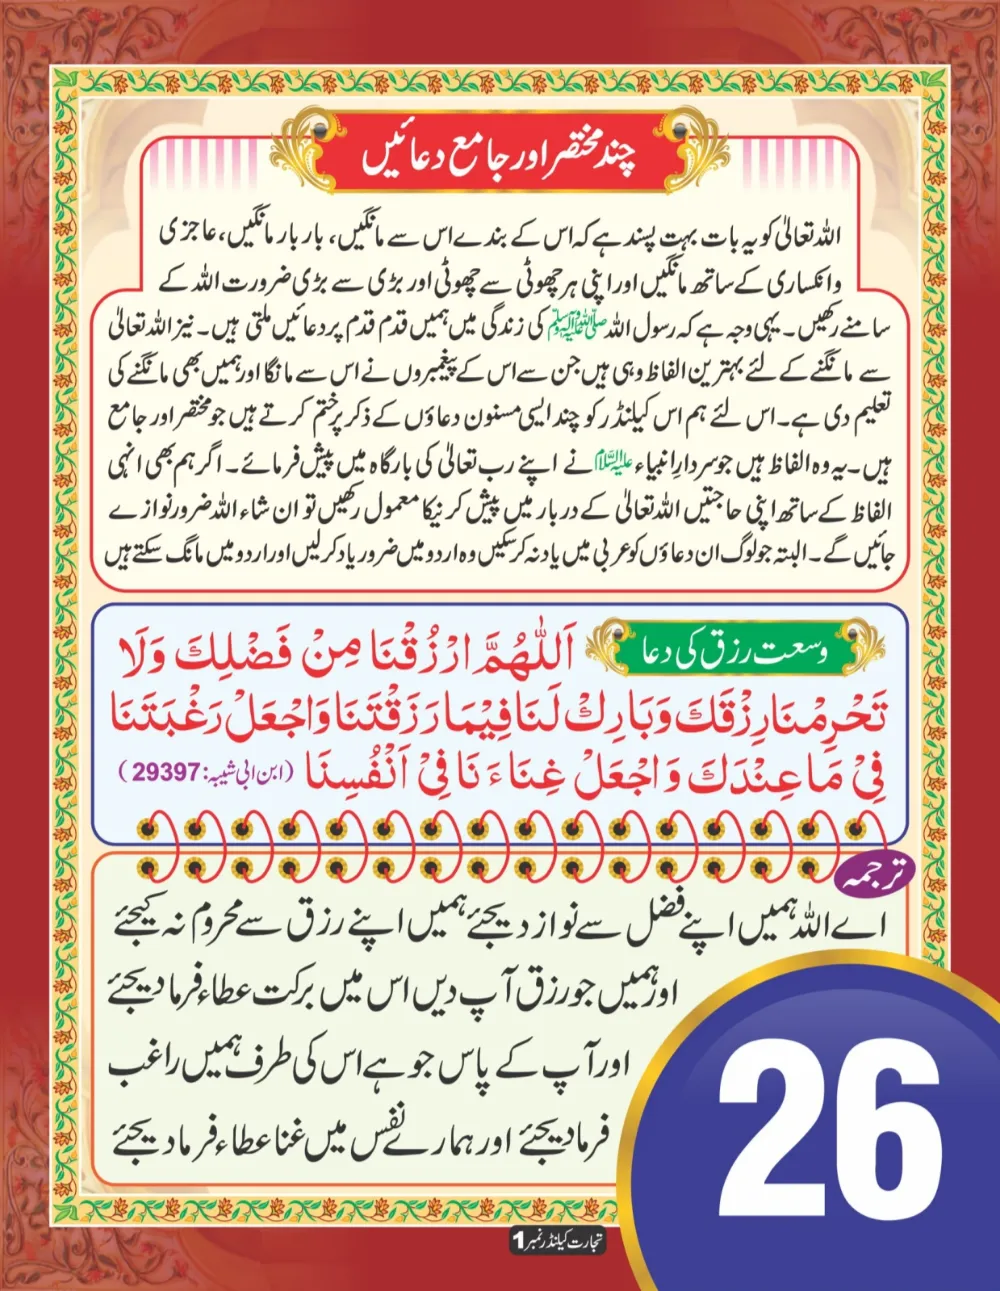 چند مختصر اور جامع دعائیں
اللہ تعالیٰ کو یہ بات بہت پسند ہے کہ اس کے بندے اس سے مانگیں، بار بار مانگیں، عاجزی
وانکساری کے ساتھ مانگیں اور اپنی ہر چھوٹی سے چھوٹی اور بڑی سے بڑی ضرورت اللہ کے
سامنے رکھیں۔ یہی وجہ ہے کہ رسول اللہ ﷺ کی زندگی میں ہمیں قدم قدم پر دعائیں ملتی ہیں۔ نیز اللہ تعالیٰ
سے مانگنے کے لئے بہترین الفاظ وہی ہیں جن سے اس کے پیغمبروں نے اس سے مانگا اور ہمیں بھی مانگنے کی
تعلیم دی ہے۔ اس لئے ہم اس کیلنڈر کو چند ایسی مسنون دعاؤں کے ذکر پر ختم کرتے ہیں جو مختصر اور جامع
ہیں۔ یہ وہ الفاظ ہیں جو سردارِ انبیاء علیہ السلام نے اپنے رب تعالیٰ کی بارگاہ میں پیش فرمائے۔ اگر ہم بھی انہی
الفاظ کے ساتھ اپنی حاجتیں اللہ تعالیٰ کے دربار میں پیش کرنیکا معمول رکھیں تو ان شاء اللہ ضرور نوازے
جائیں گے۔ البتہ جو لوگ ان دعاؤں کو عربی میں یاد نہ کرسکیں وہ اردو میں ضرور یاد کرلیں اور اردو میں مانگ سکتے ہیں
وسعت رزق کی دعا
اَللّٰهُمَّ ارْزُقْنَا مِنْ فَضْلِكَ وَلَا
تَحْرِمْنَا رِزْقَكَ وَبَارِكْ لَنَا فِيْمَا رَزَقْتَنَا وَاجْعَلْ رَغْبَتَنَا
فِيْ مَا عِنْدَكَ وَاجْعَلْ غِنَاءَنَا فِيْ اَنْفُسِنَا (ابن ابی شیبہ: 29397)
ترجمہ
اے اللہ ہمیں اپنے فضل سے نواز دیجئے ہمیں اپنے رزق سے محروم نہ کیجئے
اور ہمیں جو رزق آپ دیں اس میں برکت عطاء فرما دیجئے
اور آپ کے پاس جو ہے اس کی طرف ہمیں راغب
فرما دیجئے اور ہمارے نفس میں غنا عطاء فرما دیجئے
26
تجارت کیلنڈر نمبر 1